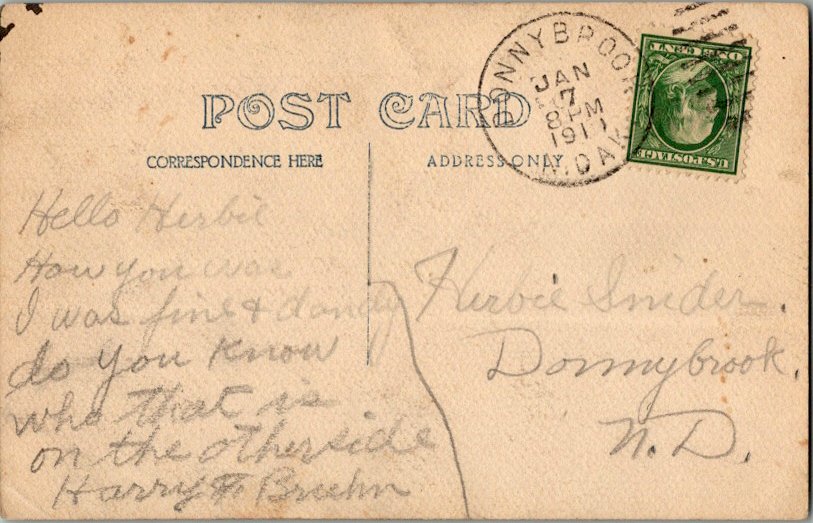 DONNYBROOK
JAN
7
8 PM
1911
N. DAK.
ONE CENT
U.S. POSTAGE
POST CARD
CORRESPONDENCE HERE
ADDRESS ONLY
Hello Herbie
How you was
I was fine & dandy
do you know
who that is
on the otherside
Harry F Bruhn
Herbie Snider.
Donnybrook,
N.D.